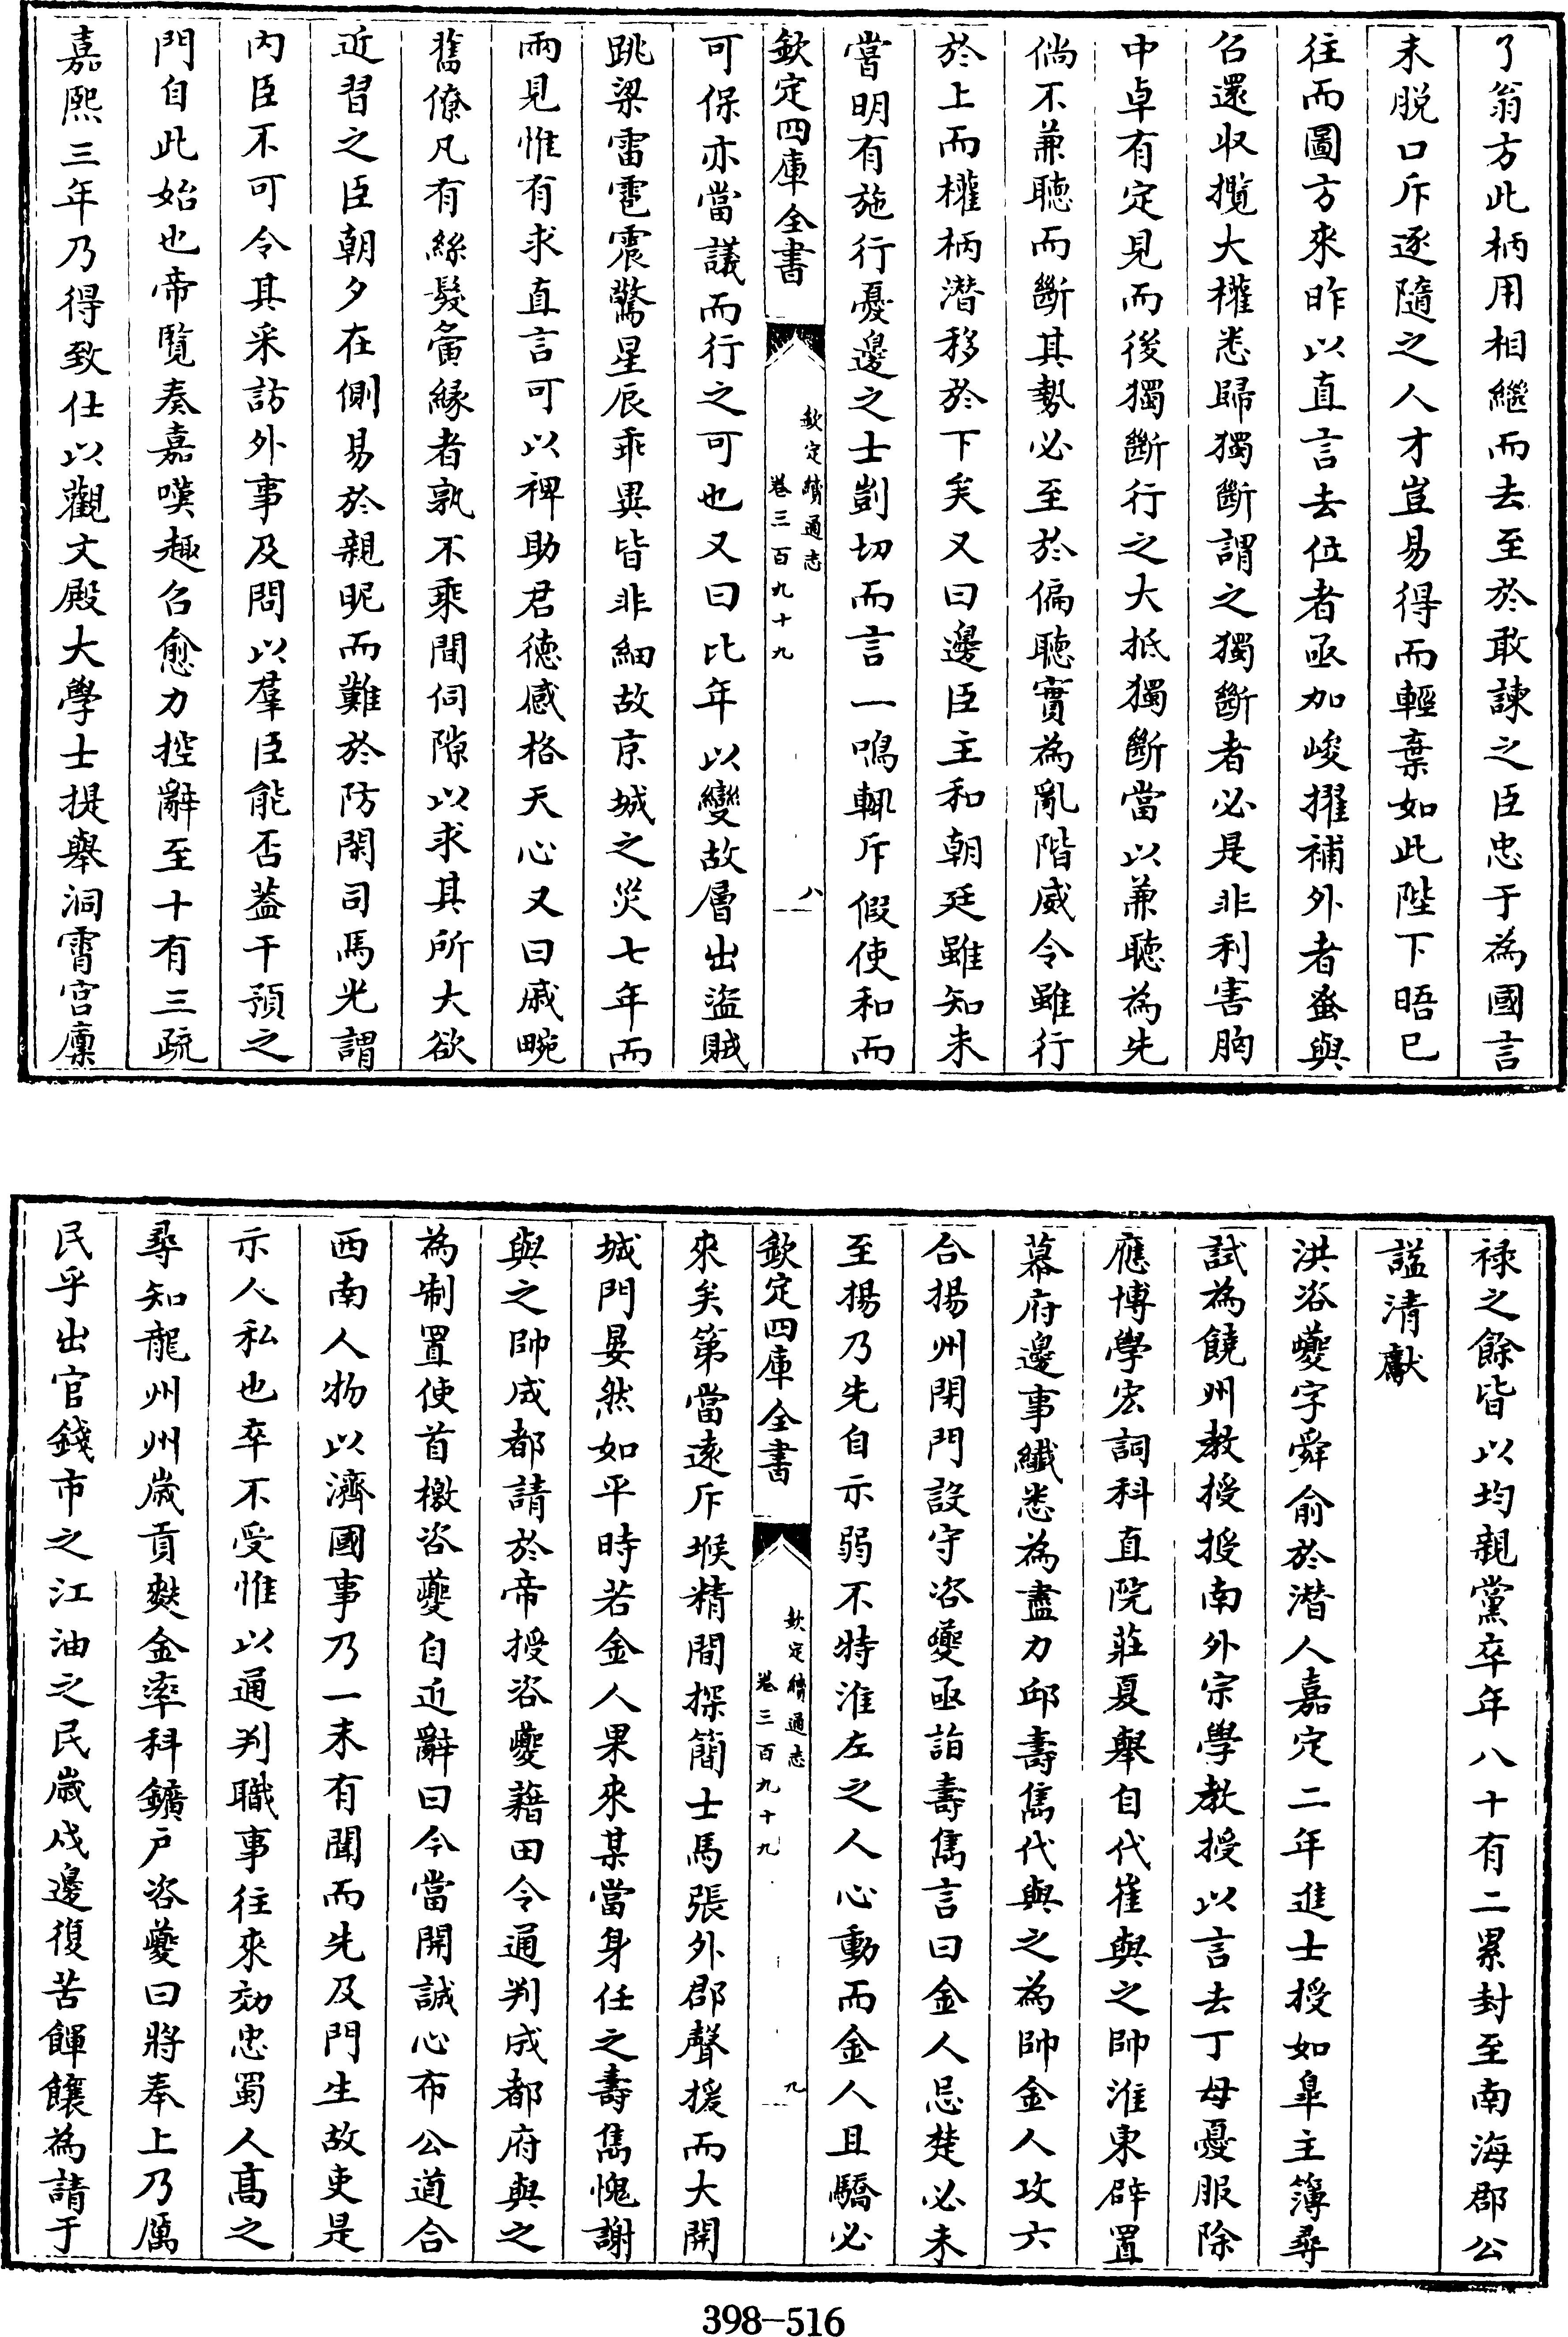 了翁方此柄用相繼而去至於敢諫之臣忠于為國言
未脱口斥逐隨之人才豈易得而輕棄如此陛下晤已
往而圖方來昨以直言去位者亟加峻擢補外者蚤與
召還收攬大權悉歸獨斷謂之獨斷者必是非利害胸
中卓有定見而後獨斷行之大抵獨斷當以兼聽為先
倘不兼聽而斷其勢必至於偏聽實為亂階威令雖行
於上而權柄潛移於下矣又曰邊臣主和朝廷雖知未
嘗明有施行憂邊之士剴切而言一鳴輒斥假使和而
欽定四庫全書
欽定續通志
卷三百九十九
八
可保亦當議而行之可也又曰比年以變故層出盜賊
跳梁雷雹震驚星辰乖異皆非細故京城之災七年而
兩見惟有求直言可以裨助君德感格天心又曰戚畹
舊僚凡有絲髮夤緣者孰不乘間伺隙以求其所大欲
近習之臣朝夕在側易於親昵而難於防閑司馬光謂
內臣不可令其采訪外事及問以羣臣能否葢干預之
門自此始也帝覽奏嘉嘆趣召愈力控辭至十有三疏
嘉熙三年乃得致仕以觀文殿大學士提舉洞霄宮廩
祿之餘皆以均親黨卒年八十有二累封至南海郡公
諡清獻
洪咨夔字舜俞於潛人嘉定二年進士授如臯主簿尋
試為饒州教授授南外宗學教授以言去丁母憂服除
應博學宏詞科直院莊夏舉自代崔與之帥淮東辟置
幕府邊事纖悉為盡力邱壽雋代與之為帥金人攻六
合揚州閉門設守咨夔亟詣壽雋言曰金人忌楚必未
至揚乃先自示弱不特淮左之人心動而金人且驕必
欽定四庫全書
欽定續通志
卷三百九十九
九
來矣第當遠斥堠精間探簡士馬張外郡聲援而大開
城門晏然如平時若金人果來某當身任之壽雋愧謝
與之帥成都請於帝授咨夔籍田令通判成都府與之
為制置使首檄咨夔自近辭曰今當開誠心布公道合
西南人物以濟國事乃一未有聞而先及門生故吏是
示人私也卒不受惟以通判職事往來効忠蜀人高之
尋知龍州州歲貢麩金率科鑛戶咨夔曰將奉上乃厲
民乎出官錢市之江油之民歲戍邊復苦餫饟為請于
398-516